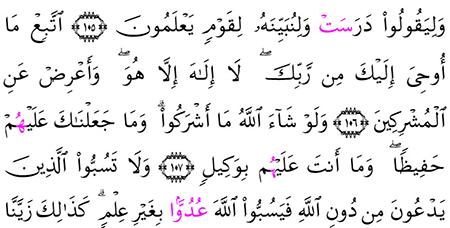 وَلِيَقُولُوا۟ دَرَسَتْ وَلِنُبَيِّنَهُۥ لِقَوْمٍ يَعْلَمُونَ ١٠٥ ٱتَّبِعْ مَا
أُوحِىَ إِلَيْكَ مِن رَّبِّكَ ۖ لَا إِلَٰهَ إِلَّا هُوَ ۖ وَأَعْرِضْ عَنِ
ٱلْمُشْرِكِينَ ١٠٦ وَلَوْ شَآءَ ٱللَّهُ مَا أَشْرَكُوا۟ ۗ وَمَا جَعَلْنَٰكَ عَلَيْهُمْ
حَفِيظًا ۖ وَمَا أَنتَ عَلَيْهُم بِوَكِيلٍ ١٠٧ وَلَا تَسُبُّوا۟ ٱلَّذِينَ
يَدْعُونَ مِن دُونِ ٱللَّهِ فَيَسُبُّوا۟ ٱللَّهَ عُدُوًّا بِغَيْرِ عِلْمٍ ۗ كَذَٰلِكَ زَيَّنَّا